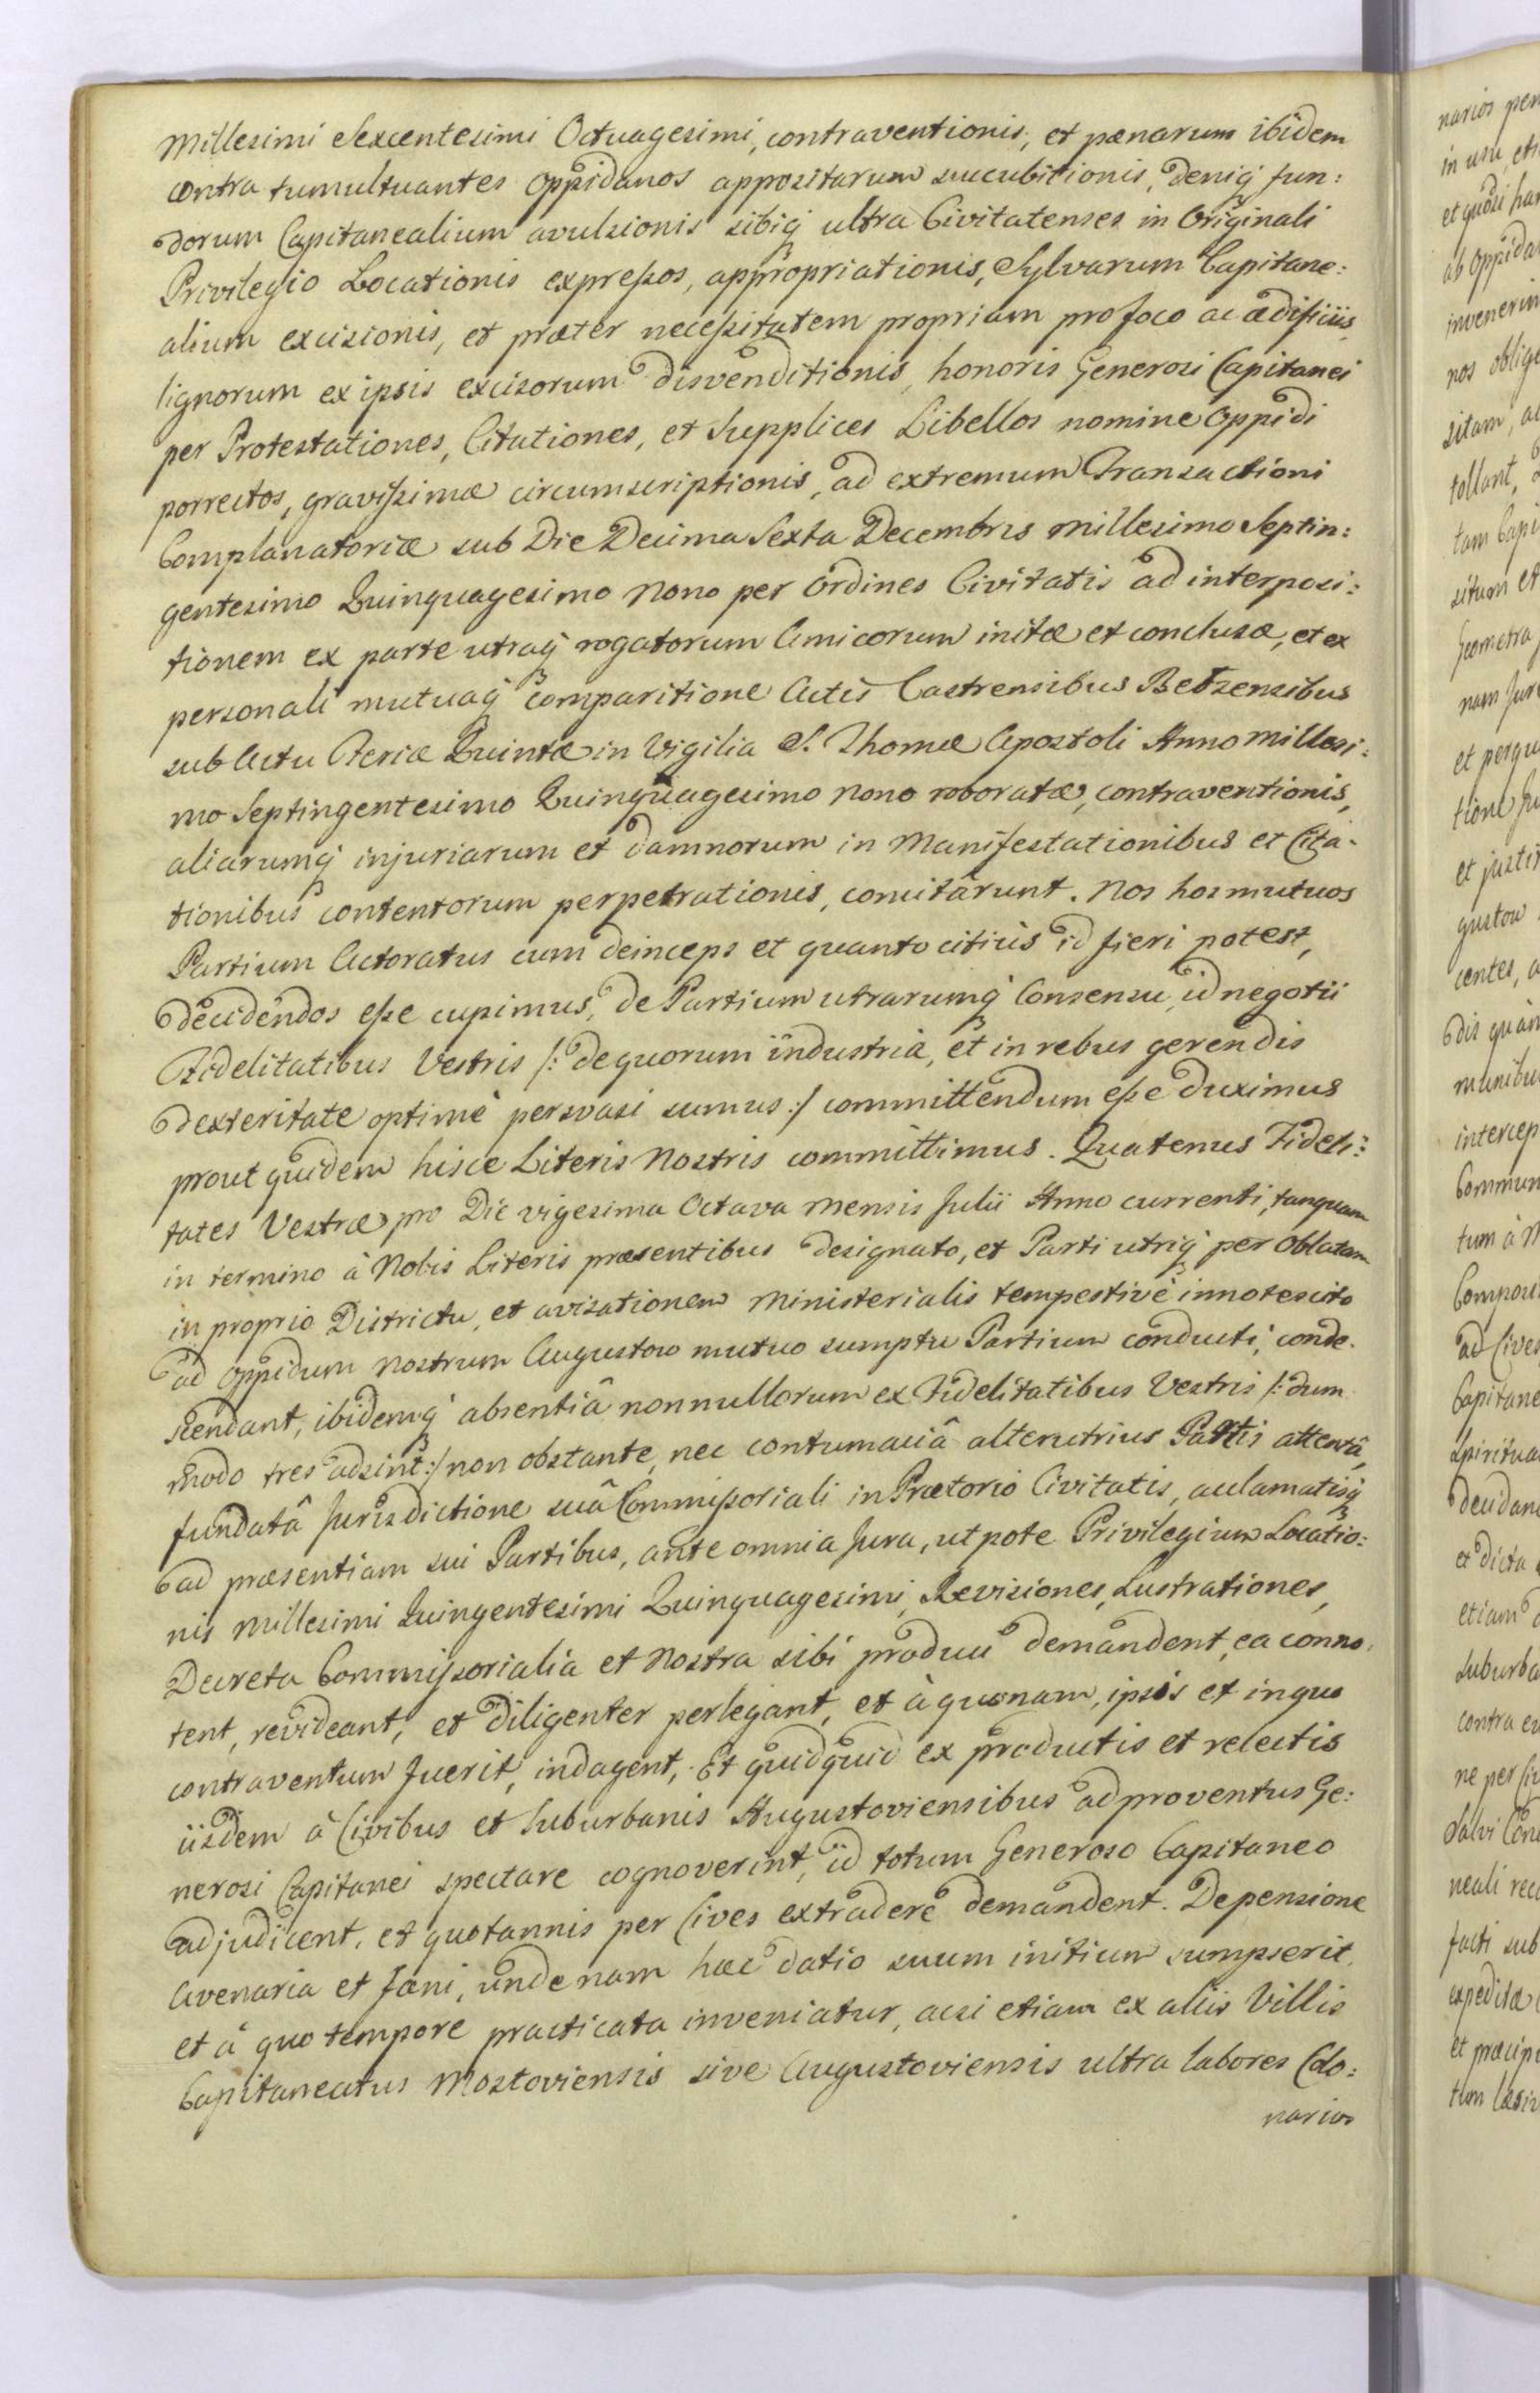 Millesimi Sexcentesimi Octuagesimi, contraventionis, et pænarum ibidem
contra tumultuantes Oppidanos appositarum succubitionis, deniq fun:
dorum Capitanealium avulsionis sibiq ultra Civitatenses in Originali
Privilegio Locationis expreßos, appropriationis, Sylvarum Capitane:
alium excisionis, et præter neceßitatem propriam pro foco ac ædificiis
lignorum ex ipsis excisorum disvenditionis, honoris Generosi Capitanei
per Protestationes, Citationes, et Supplices Libellos nomine Oppidi
porrectos, gravißimæ circumscriptionis, ad extremum Transactioni
Complanatoriæ sub Die Decima Sexta Decembris Millesimo Septin:
gentesimo Quinquagesimo Nono per Ordines Civitatis ad interposi:
tionem ex parte utraq rogatorum Amicorum initæ et conclusæ, et ex
personali mutuaq comparitione Actis Castrensibus Betzensibus
sub Actu Feriæ Quintæ in Vigilia S. Thomæ Apostoli Anno Millesi:
mo Septingentesimo Quinquagesimo Nono roboratæ, contraventionis,
aliarumq injuriarum et damnorum in Manifestationibus et Cita-
tionibus contentorum perpetrationis, comitârunt. Nos hos mutuos
Partium Actoratus cum deinceps et quanto citiùs id fieri potest,
decidendos eße cupimus, de Partium utrarumq Consensu, id negotii
Fidelitatibus Vestris /: de quorum industria, et in rebus gerendis
dexteritate optimè persvasi sumus :/ committendum eße duximus
prout quidem hisce Literis Nostris committimus. Quatenus Fideli:
tates Vestræ pro Die vigesima Octava Mensis Julii Anno currenti, tanquam
in termino à Nobis Literis præsentibus designato, et Parti utriq per Oblatam
in proprio Districtu, et avisationem Ministerialis tempestivè innotescito
ad Oppidum Nostrum Augustow mutuo sumptu Partium conducti, conde-
scendant, ibidemq absentiâ nonnullorum ex Fidelitatibus Vestris /: dum
modo tres adsint :/ non obstante, nec contumaciâ alterutrius Partis attentâ,
fundatâ Jurisdictione suâ Commißoriali in Prætorio Civitatis, acclamatisq
ad præsentiam sui Partibus, ante omnia Jura, ut pote Privilegium Locatio:
nis Millesimi Quingentesimi Quinquagesimi, Revisiones, Lustrationes,
Decreta Commißorialia et Nostra sibi produci demandent, ea conno-
tent, revideant, et diligenter perlegant, et à quonam, ipsis et in quo
contraventum fuerit, indagent, Et quidquid ex productis et relectis
iisdem à Civibus et Suburbanis Augustoviensibus ad proventus Ge:
nerosi Capitanei spectare cognoverint, id totum Generoso Capitaneo
adjudicent, et quotannis per Cives extradere demandent. De pensione
Avenaria et fæni, unde nam hæc datio suum initium sumpserit,
et à quo tempore practicata inveniatur, acsi etiam ex aliis Villis
Capitaneatus Mostoviensis sive Augustoviensis ultra labores Colo:
narios